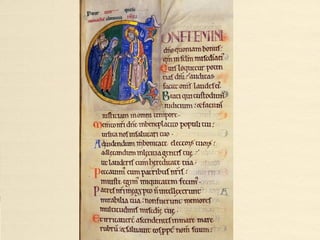 ONFITEMINI
dño quoniam bonus:
Quis loquetur poten
tias dñi: auditas
faciet oms laudes ei
Beati qui custodiunt
iudicium: & faciunt
iusticiam in omni tempore.
Memento nr̄i dn̄e in beneplacito populi tui:
uisita nos in salutari tuo.
Ad uidendum in bonitate electorū tuorū:
ad letandum in leticia gentis tuę:
ut lauderis cum hereditate tua.
Peccauimꝰ cum patribus nr̄is:
iniuste egimꝰ iniquitatem fecimꝰ.
Patres nr̄i in egypto ñ intellexerunt
mirabilia tua: non fuerunt memores
multitudinis misc̄dię tuę.
Et irritauerūt ascendentes in mare mare
rubrū: & saluauit eos ꝓpt̄ nom̄ suum.